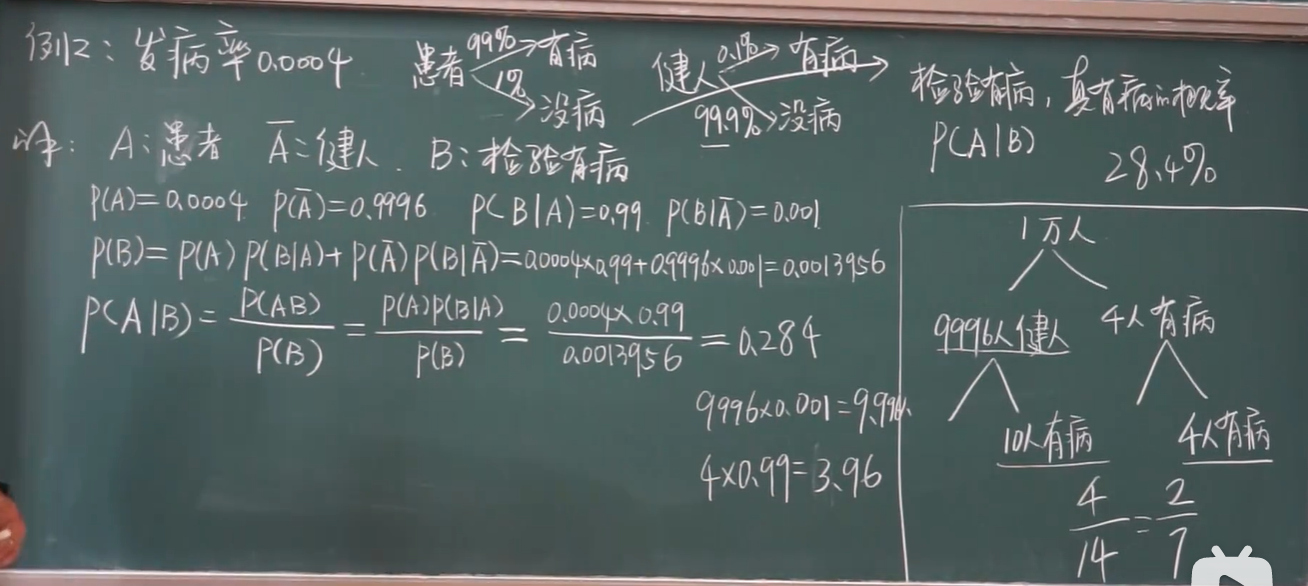 例2：发病率0.0004 患者 99%→有病 1%→没病 健人 0.1%→有病 99.9%→没病
检验有病，真有病的概率
P(A|B) 28.4%
A：患者 Ā：健人. B：检验有病
P(A)=0.0004 P(Ā)=0.9996 P(B|A)=0.99 P(B|Ā)=0.001
P(B)=P(A)P(B|A)+P(Ā)P(B|Ā)=0.0004×0.99+0.9996×0.001=0.0013956
P(A|B)=P(AB)/P(B)=P(A)P(B|A)/P(B)=0.0004×0.99/0.0013956=0.284
9996×0.001=9.996
4×0.99=3.96
1万人
9996人健人 4人有病
10人有病 4人有病
4/14=2/7